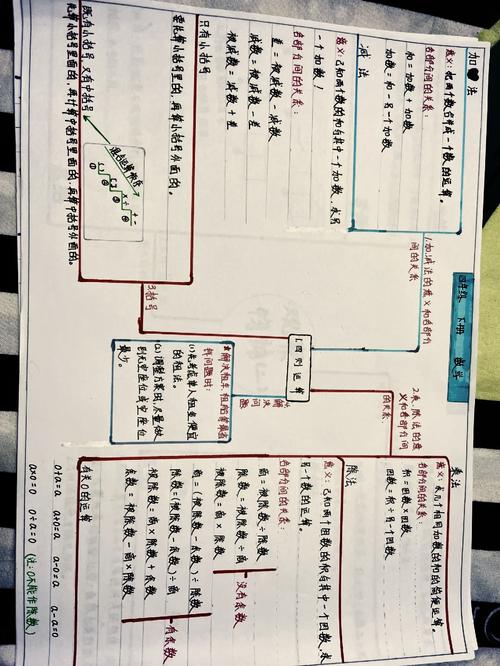 四年级 下册 数学
1.四则运算
1.加、减法的意义和各部分
间的关系
加法
意义:把两个数合并成一个数的运算。
各部分间的关系:
和=加数+加数
加数=和-另一个加数
减法
意义:已知两个数的和与其中一个加数,求另
一个加数!
各部分间的关系:
差=被减数-减数
减数=被减数-差
被减数=减数+差
2.乘、除法的意
义和各部分间
的关系
乘法
意义:求几个相同加数的和的简便运算。
各部分间的关系:
积=因数×因数
因数=积÷另一个因数
除法
意义:已知两个因数的积与其中一个因数,求
另一个数的运算。
各部分间的关系:
商=被除数÷除数
除数=被除数÷商
被除数=商×除数
没有余数
商=(被除数-余数)÷除数
除数=(被除数-余数)÷商
被除数=商×除数+余数
余数=被除数-商×除数
有余数
有关0的运算
0+a=a a+0=a a-0=a a-a=0
a×0=0 0÷a=0 (注:0不能作除数)
3.括号
只有小括号
要先算小括号里面的,再算小括号外面的。
既有小括号又有中括号
先算小括号里面的,再算中括号里面的,再算中括号外面的。
混合运算顺序
① ② ③ ④
解决问题
解决租车、租船等算式
样问题时:
(1)先考虑单人租金便宜
的租法。
(2)调整方案时,尽量做
到无空座位或空座位
最少。